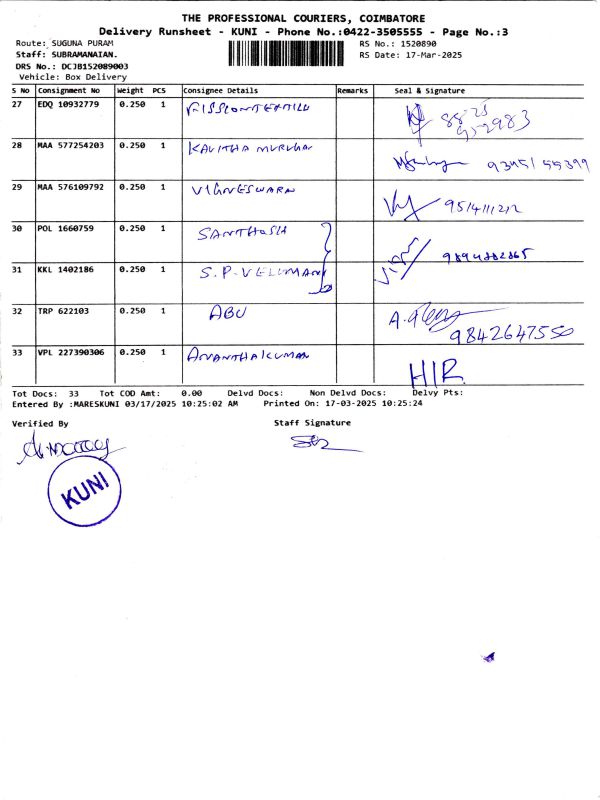 THE PROFESSIONAL COURIERS, COIMBATORE
Delivery Runsheet - KUNI - Phone No.:0422-3505555 - Page No.:3
Route: SUGUNA PURAM
RS No.: 1520890
Staff: SUBRAMANAIAN.
RS Date: 17-Mar-2025
DRS No.: DCJB152089003
Vehicle: Box Delivery
S No Consignment No Weight PCS Consignee Details Remarks Seal & Signature
27 EDQ 10932779 0.250 1
28 MAA 577254203 0.250 1 KAVITHA MURUGAN 9345155399
29 MAA 576109792 0.250 1 VIGNESWARN 9514111212
30 POL 1660759 0.250 1 SANTHOSH
31 KKL 1402186 0.250 1 S.P.VELUMANI 9894882865
32 TRP 622103 0.250 1 ABU 9842647550
33 VPL 227390306 0.250 1 ANANTHAKUMAR HIR
Tot Docs: 33 Tot COD Amt: 0.00 Delvd Docs: Non Delvd Docs: Delvy Pts:
Entered By :MARESKUNI 03/17/2025 10:25:02 AM Printed On: 17-03-2025 10:25:24
Verified By Staff Signature
KUNI